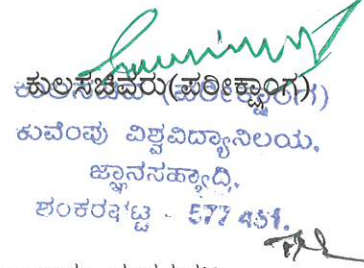 ಕುಲಸಚಿವರು(ಪರೀಕ್ಷಾಂಗ)
ಕುಲಸಚಿವ (ಪರೀಕ್ಷಾಂಗ)
ಕುವೆಂಪು ವಿಶ್ವವಿದ್ಯಾನಿಲಯ,
ಜ್ಞಾನಸಹ್ಯಾದ್ರಿ,
ಶಂಕರಘಟ್ಟ - 577 451.